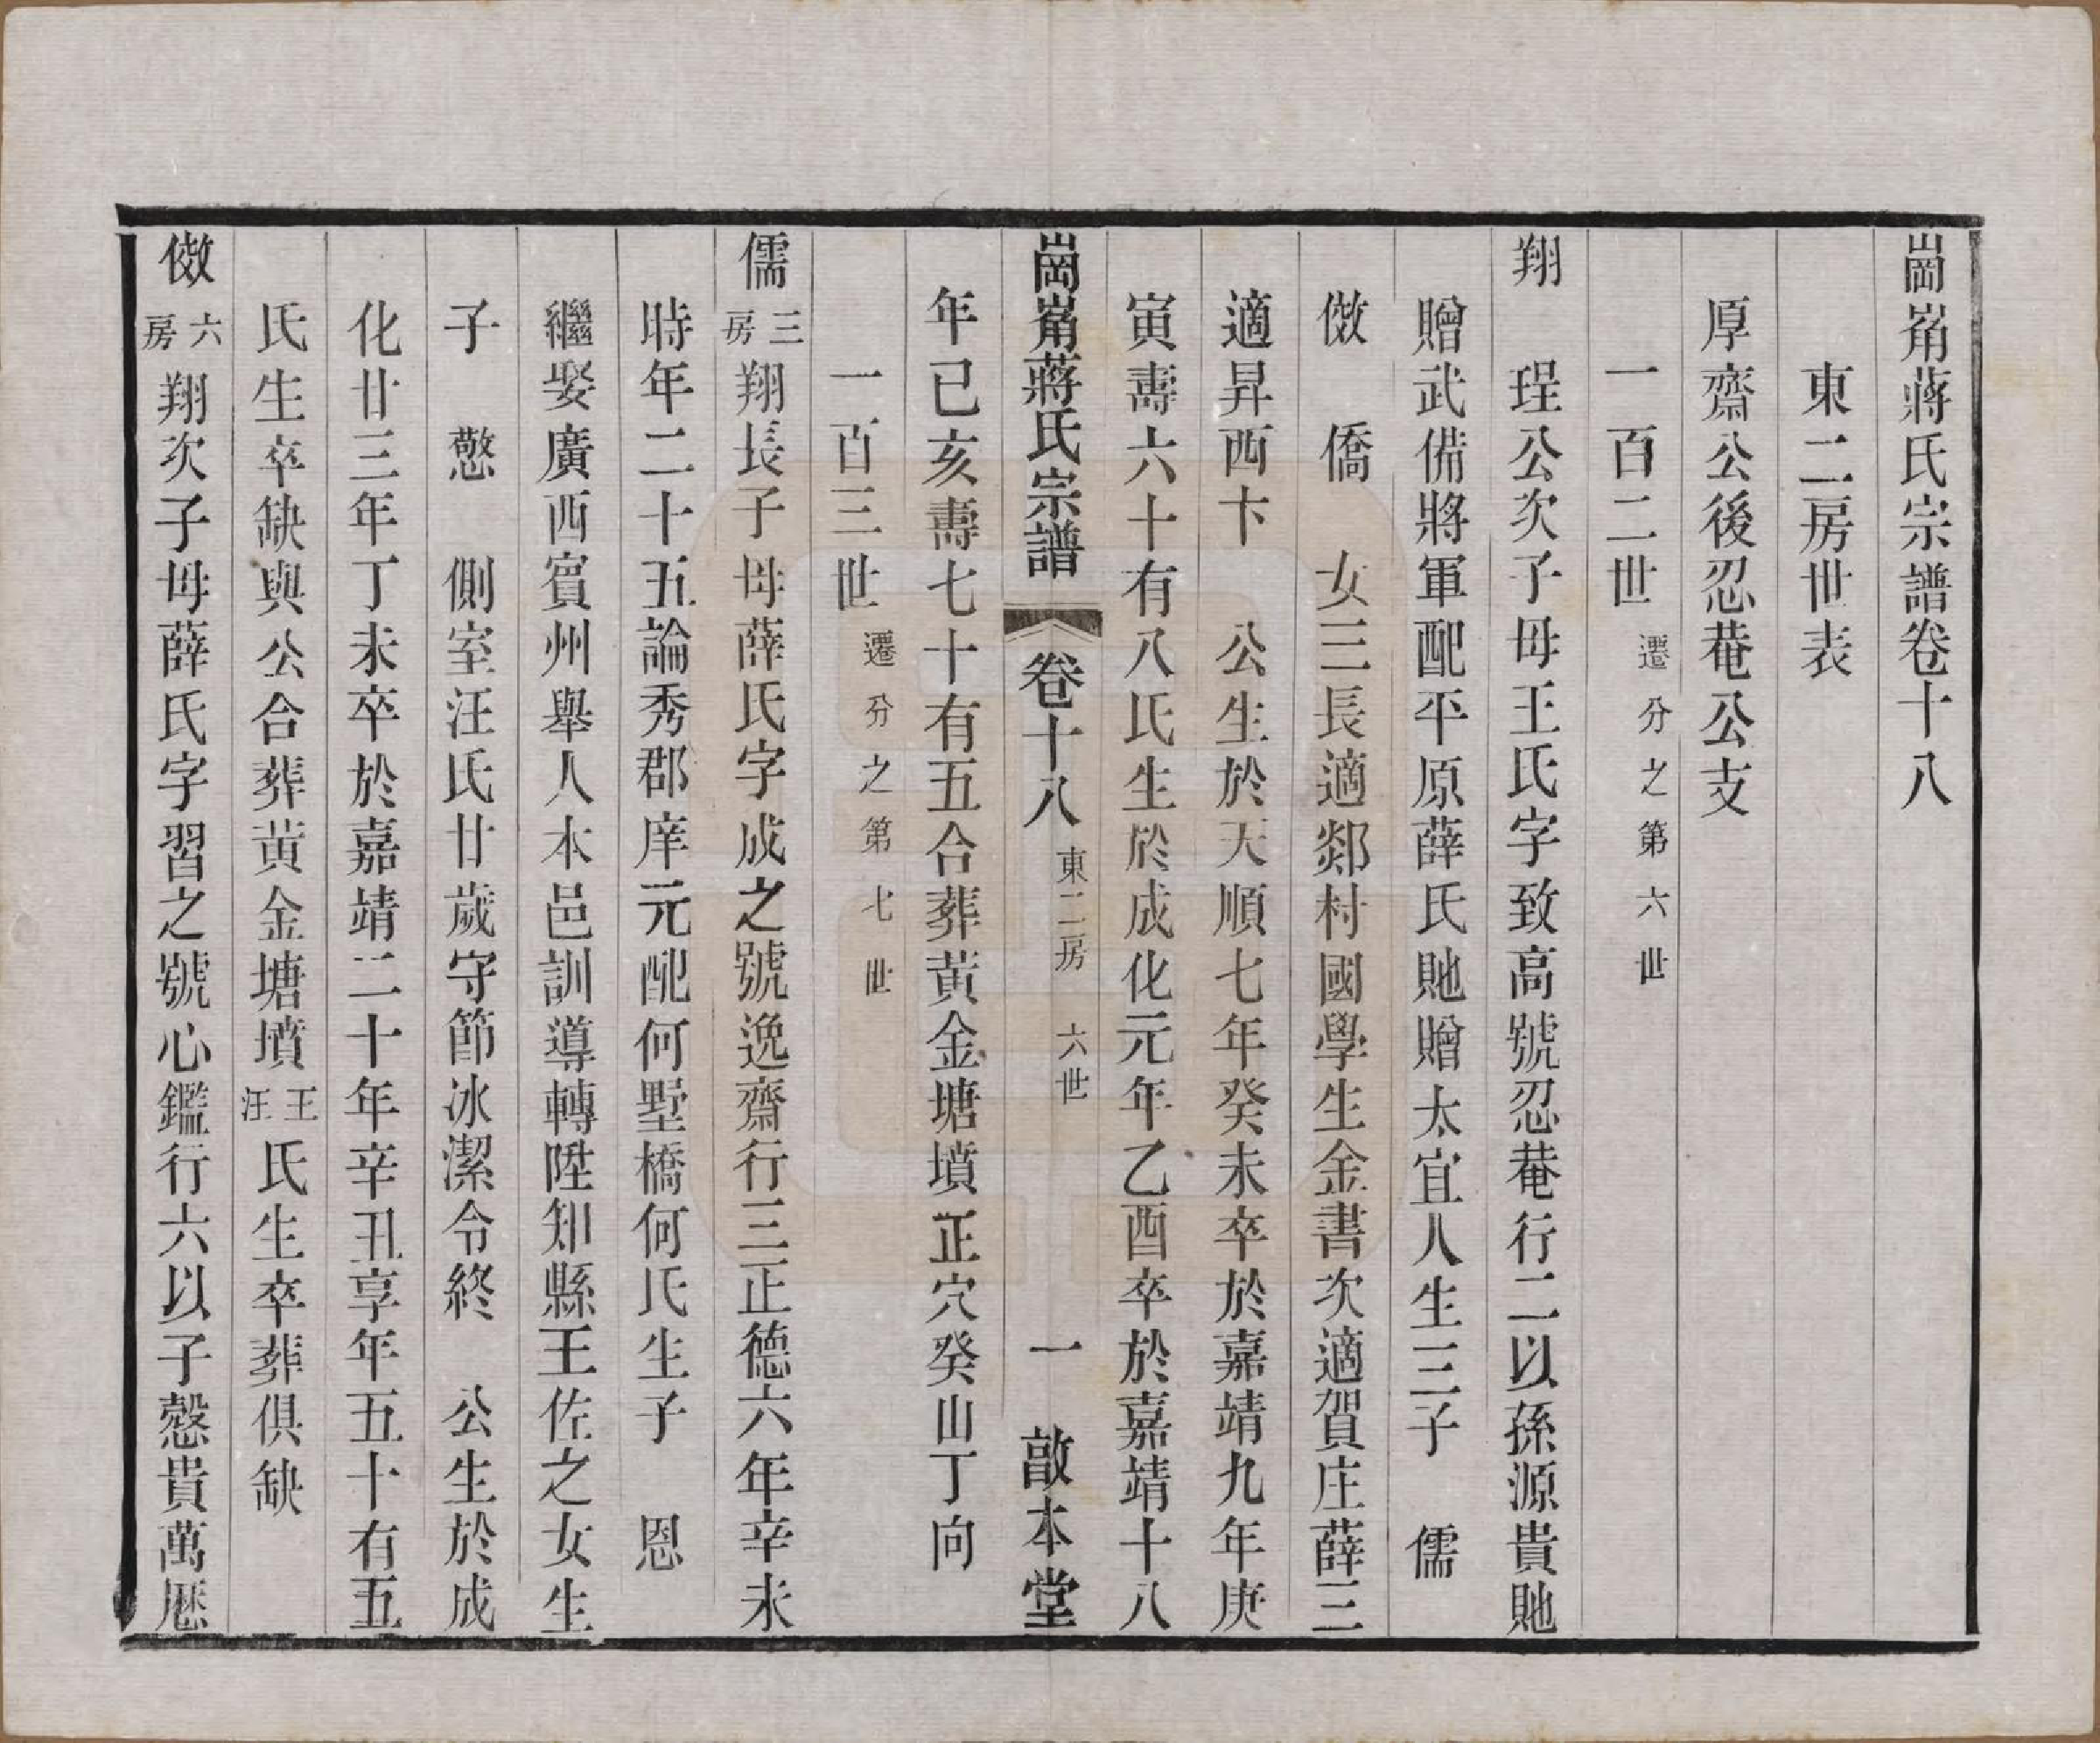 崗崗蔣氏宗譜卷十八
東二房世表
厚齋公後忍菴公支
一百二世 遷分之第六世
翔 珵公次子母王氏字致高號忍菴行二以孫源貴貤
贈武備將軍配平原薛氏貤贈太宜人生三子 儒
儆 僑 女三長適郯村國學生金書次適賀庄薛三
適昇西卞 公生於天順七年癸未卒於嘉靖九年庚
寅壽六十有八氏生於成化元年乙酉卒於嘉靖十八
崗崗蔣氏宗譜 卷十八 東二房 六世 一 敬本堂
年己亥壽七十有五合葬黃金塘墳正穴癸山丁向
一百三世 遷分之第七世
儒 三房 翔長子母薛氏字成之號逸齋行三正德六年辛未
時年二十五論秀郡庠元配何墅橋何氏生子 恩
繼娶廣西賓州舉人本邑訓導轉陞知縣王佐之女生
子 憨 側室汪氏廿歲守節冰潔令終 公生於成
化廿三年丁未卒於嘉靖二十年辛丑享年五十有五
氏生卒缺與公合葬黃金塘墳王汪氏生卒葬俱缺
儆 六房 翔次子母薛氏字習之號心鑑行六以子慤貴萬厯